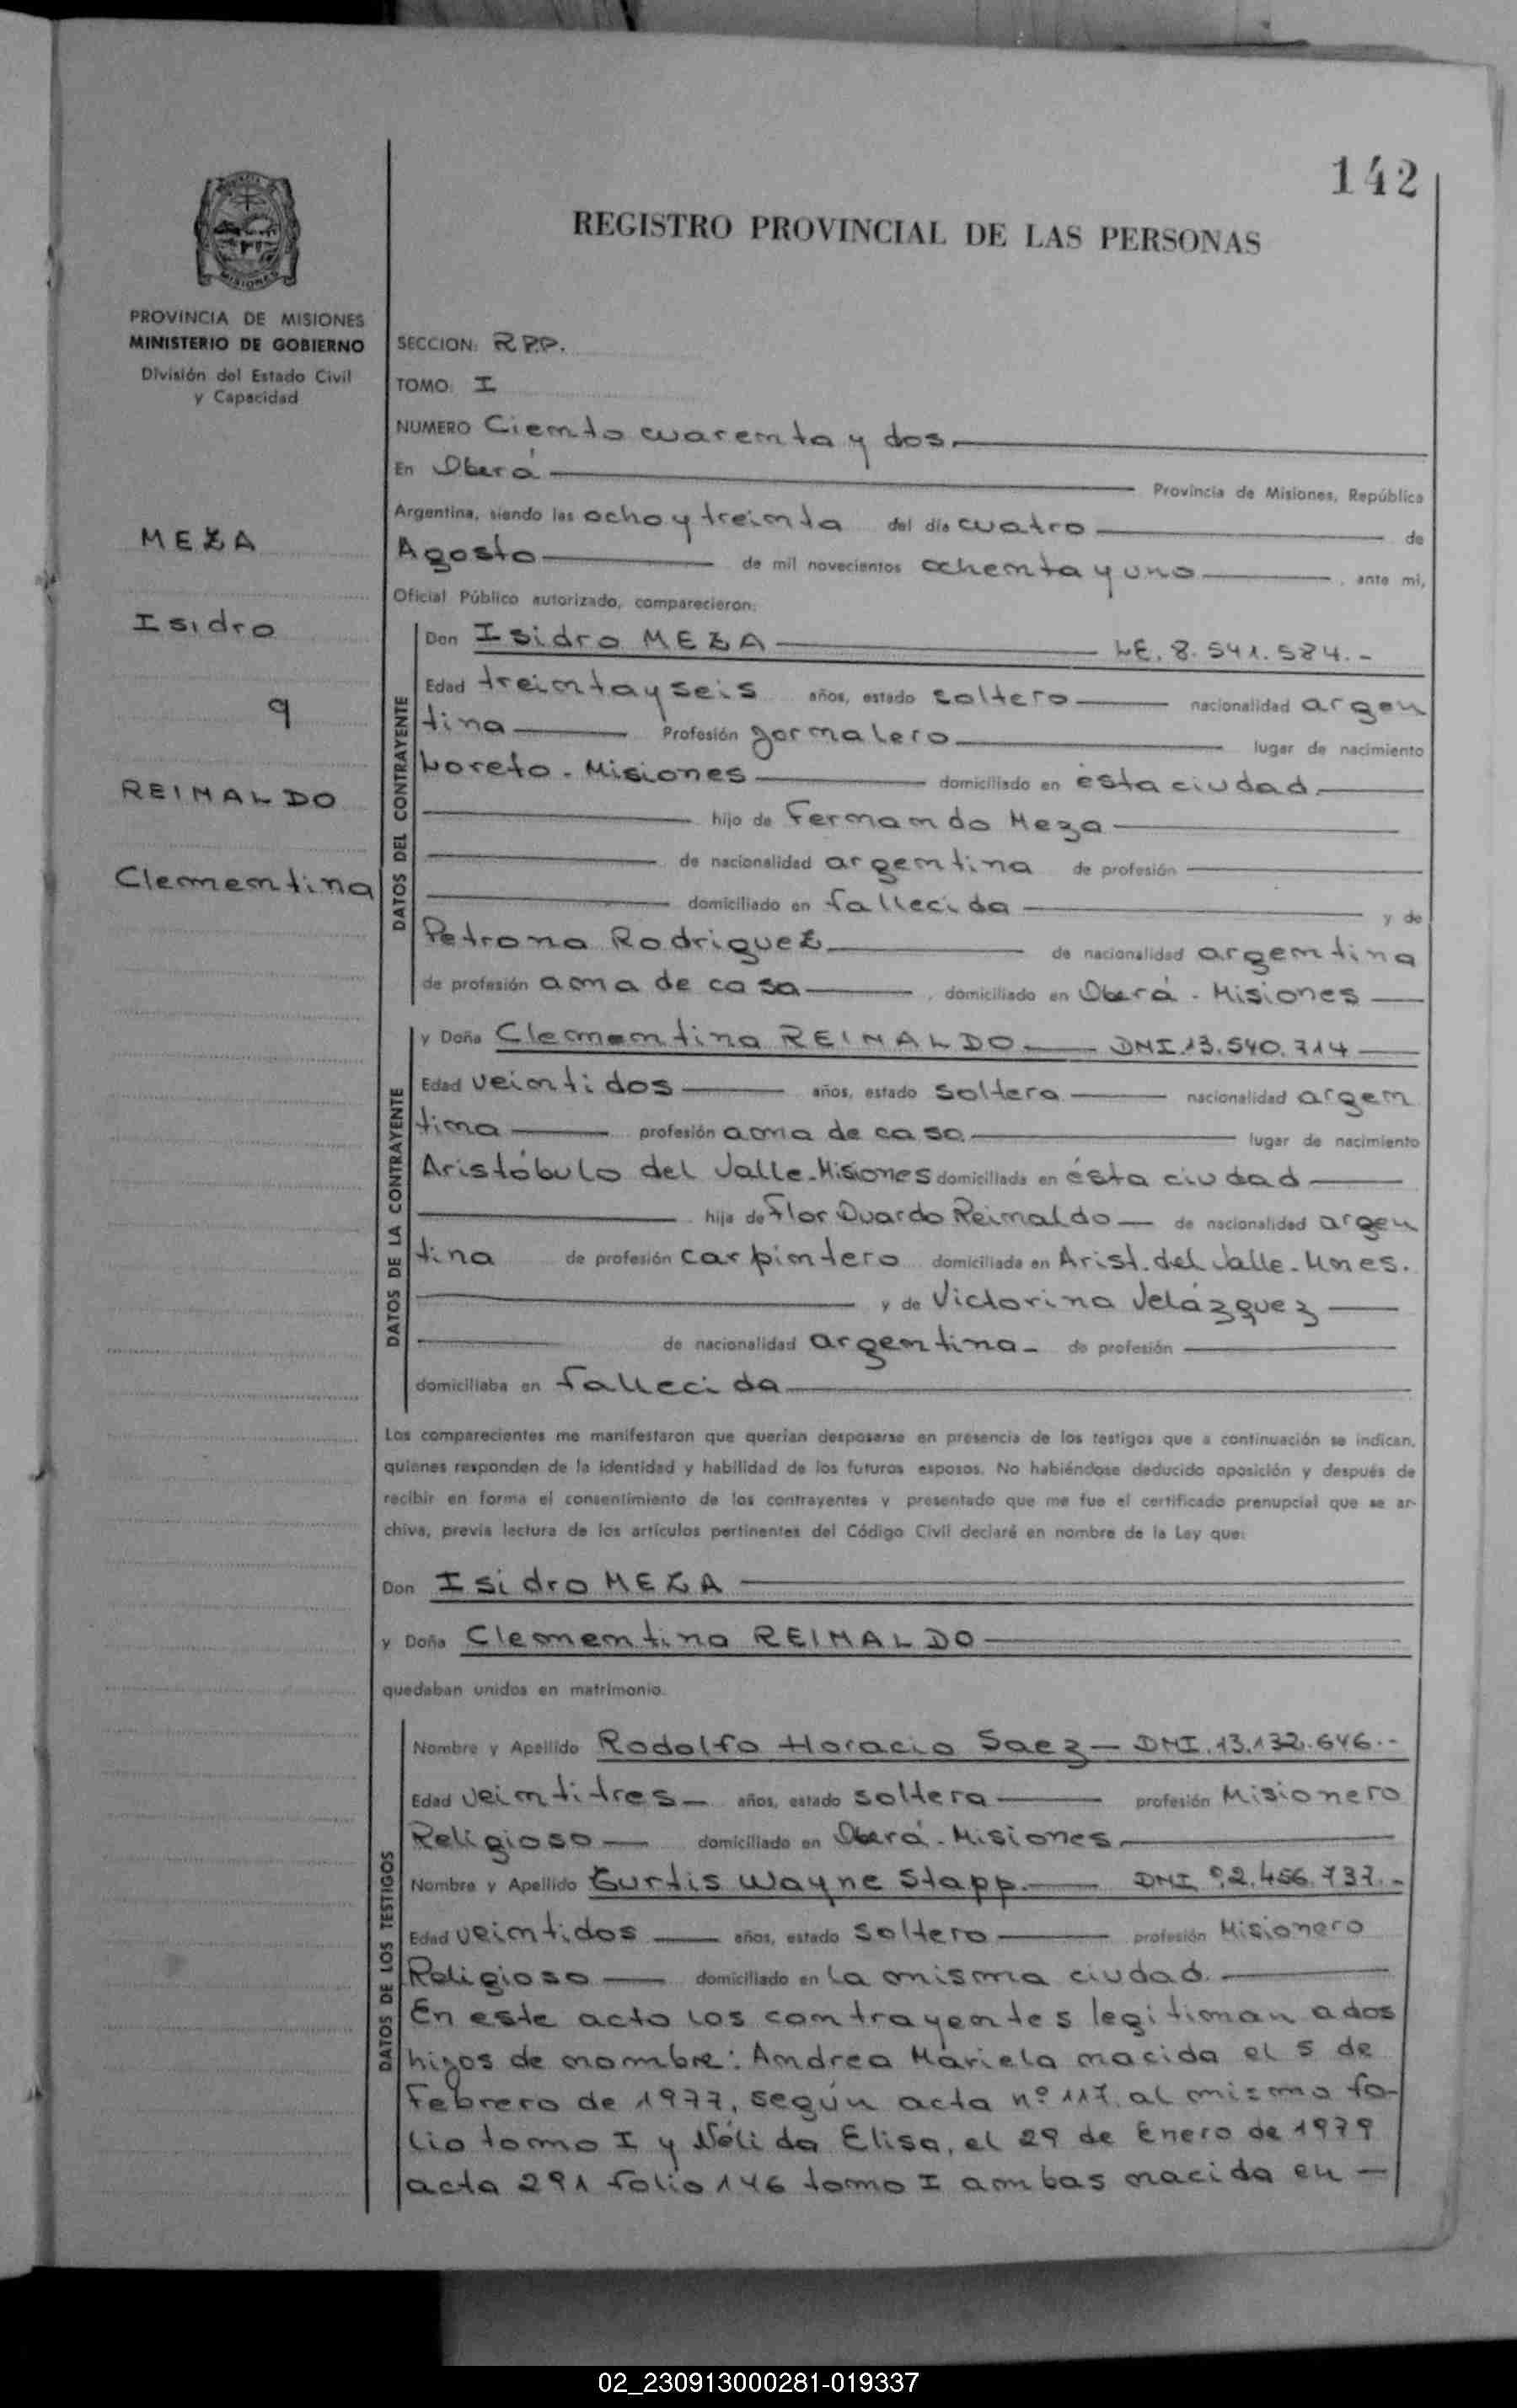 142
REGISTRO PROVINCIAL DE LAS PERSONAS
MISIONES
PROVINCIA DE MISIONES
MINISTERIO DE GOBIERNO
División del Estado Civil
y Capacidad
MEZA
Isidro
q
REINALDO
Clementina
SECCION: R.P.P.
TOMO: I
NUMERO Ciento cuarenta y dos.
En Oberá Provincia de Misiones, República
Argentina, siendo las ocho y treinta del día cuatro de
Agosto de mil novecientos ochenta y uno, ante mi,
Oficial Público autorizado, comparecieron:
DATOS DEL CONTRAYENTE
Don Isidro MEZA LE. 8.541.584.-
Edad treinta y seis años, estado soltero nacionalidad argen
tina Profesión jornalero lugar de nacimiento
Loreto - Misiones domiciliado en ésta ciudad.
hijo de Fernando Meza
de nacionalidad argentina de profesión
domiciliado en fallecida y de
Petrona Rodriguez de nacionalidad argentina
de profesión ama de casa, domiciliado en Oberá - Misiones
DATOS DE LA CONTRAYENTE
y Doña Clementina REINALDO DNI.13.540.714
Edad veintidos años, estado soltera nacionalidad argen
tina profesión ama de casa. lugar de nacimiento
Aristóbulo del Valle-Misiones domiciliada en ésta ciudad
hija de Flor Duardo Reinaldo de nacionalidad argen
tina de profesión carpintero domiciliada en Arist. del Valle-Mnes.
y de Victorina Velázquez
de nacionalidad argentina- de profesión
domiciliaba en fallecida
Los comparecientes me manifestaron que querían desposarse en presencia de los testigos que a continuación se indican,
quienes responden de la identidad y habilidad de los futuros esposos. No habiéndose deducido oposición y después de
recibir en forma el consentimiento de los contrayentes y presentado que me fue el certificado prenupcial que se ar-
chiva, previa lectura de los artículos pertinentes del Código Civil declaré en nombre de la Ley que:
Don Isidro MEZA
y Doña Clementina REINALDO
quedaban unidos en matrimonio.
DATOS DE LOS TESTIGOS
Nombre y Apellido Rodolfo Horacio Saez - DNI.13.132.646.-
Edad veintitres- años, estado soltera profesión Misionero
Religioso domiciliado en Oberá - Misiones
Nombre y Apellido Curtis Wayne Stapp. DNI 92.456.737.-
Edad veintidos años, estado soltero profesión Misionero
Religioso domiciliado en la misma ciudad.
En este acto los contrayentes legitiman a dos
hijos de nombre: Andrea Mariela nacida el 5 de
Febrero de 1977, según acta nº 117 al mismo fo-
lio tomo I y Nélida Elisa, el 29 de Enero de 1979
acta 291 folio 146 tomo I ambas nacida en -
02_230913000281-019337